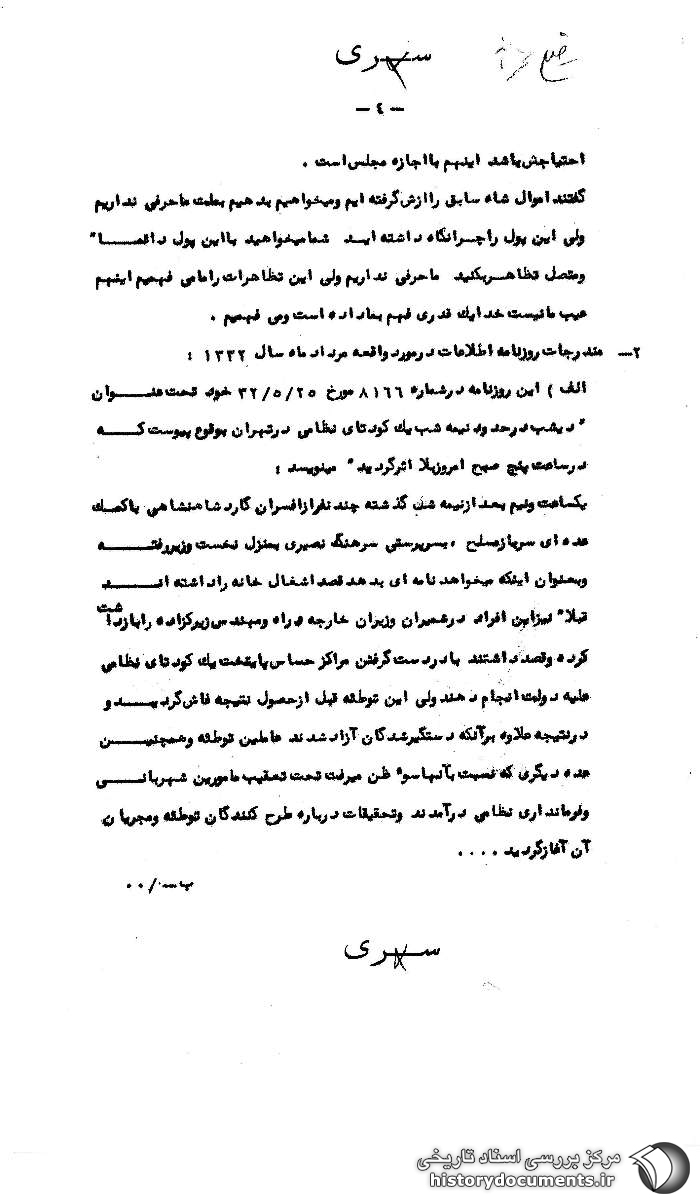 سری
- ٤ -
احتیاجش باشد اینهم با اجازه مجلس است .
گفتند اموال شاه سابق را ازش گرفته ایم ومیخواهیم بدهیم بملت ماحرفی نداریم
ولی این پول را چرا نگاه داشته اید شما میخواهید با این پول دائما"
ومتصل تظاهر بکنید ماحرفی نداریم ولی این تظاهرات را ما می فهمیم اینهم
عیب ما نیست خدا یك قدری فهم بما داده است ومی فهمیم .
۲- مندرجات روزنامه اطلاعات در مورد واقعه مرداد ماه سال ۱۳۳۲ :
الف ) این روزنامه در شماره ۸۱٦٦ مورخ ۳۲/٥/۲٥ خود تحت عنوان
" دیشب در حدود نیمه شب یك کودتای نظامی در تهران بوقوع پیوست که
در ساعت پنج صبح امروز بلا اثر گردید " مینویسد :
یکساعت ونیم بعد از نیمه شب گذشته چند نفر از افسران گارد شاهنشاهی با کمك
عده ای سرباز مسلح ، بسرپرستی سرهنگ نصیری بمنزل نخست وزیر رفته
وبعنوان اینکه میخواهد نامه ای بدهد قصد اشغال خانه را داشته اند
قبلا" نیز این افراد در شمیران وزیران خارجه و راه ومهندس زیرکزاده را بازداشت
کرده وقصد داشتند با در دست گرفتن مراکز حساس پایتخت یك کودتای نظامی
علیه دولت انجام دهند ولی این توطئه قبل از حصول نتیجه فاش گردید و
در نتیجه علاوه بر آنکه دستگیر شدگان آزاد شدند عاملین توطئه وهمچنین
عده دیگری که نسبت بآنها سو" ظن میرفت تحت تعقیب مامورین شهربانی
وفرمانداری نظامی در آمدند وتحقیقات درباره طرح کنندگان توطئه ومجریان
آن آغاز گردید ....
ب-۰۰/۰
سری
مرکز بررسی اسناد تاریخی
historydocuments.ir